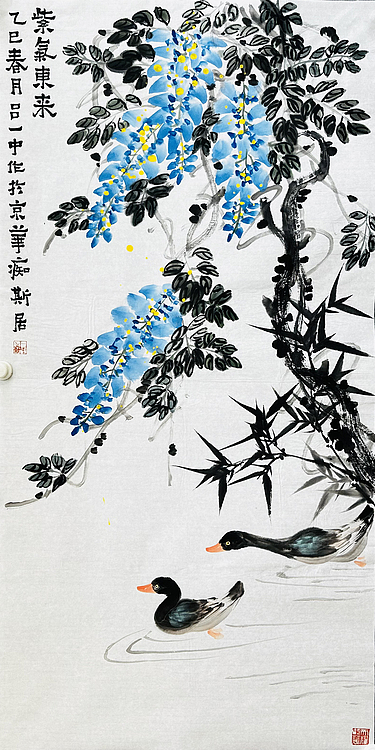 紫氣東来
乙巳春月吕一中作於京華痴斯居